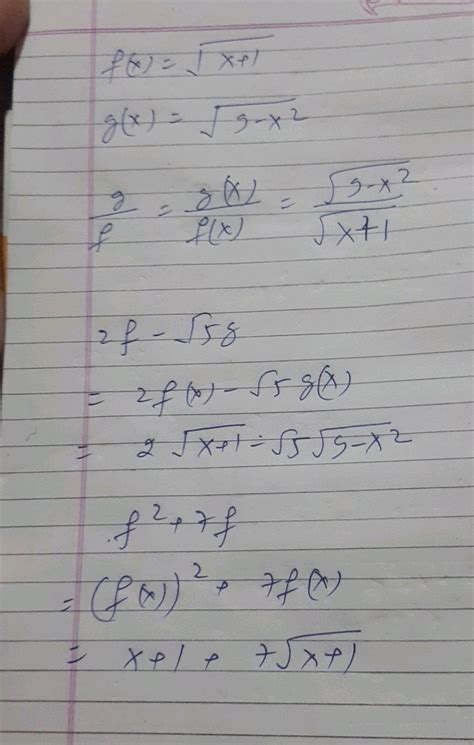 f(x) = √(x+1)
g(x) = √(9-x²)
g/f = g(x)/f(x) = √(9-x²)/√(x+1)
2f - √5g
= 2f(x) - √5 g(x)
= 2 √(x+1) - √5 √(9-x²)
f² + 7f
= (f(x))² + 7f(x)
= x+1 + 7√(x+1)